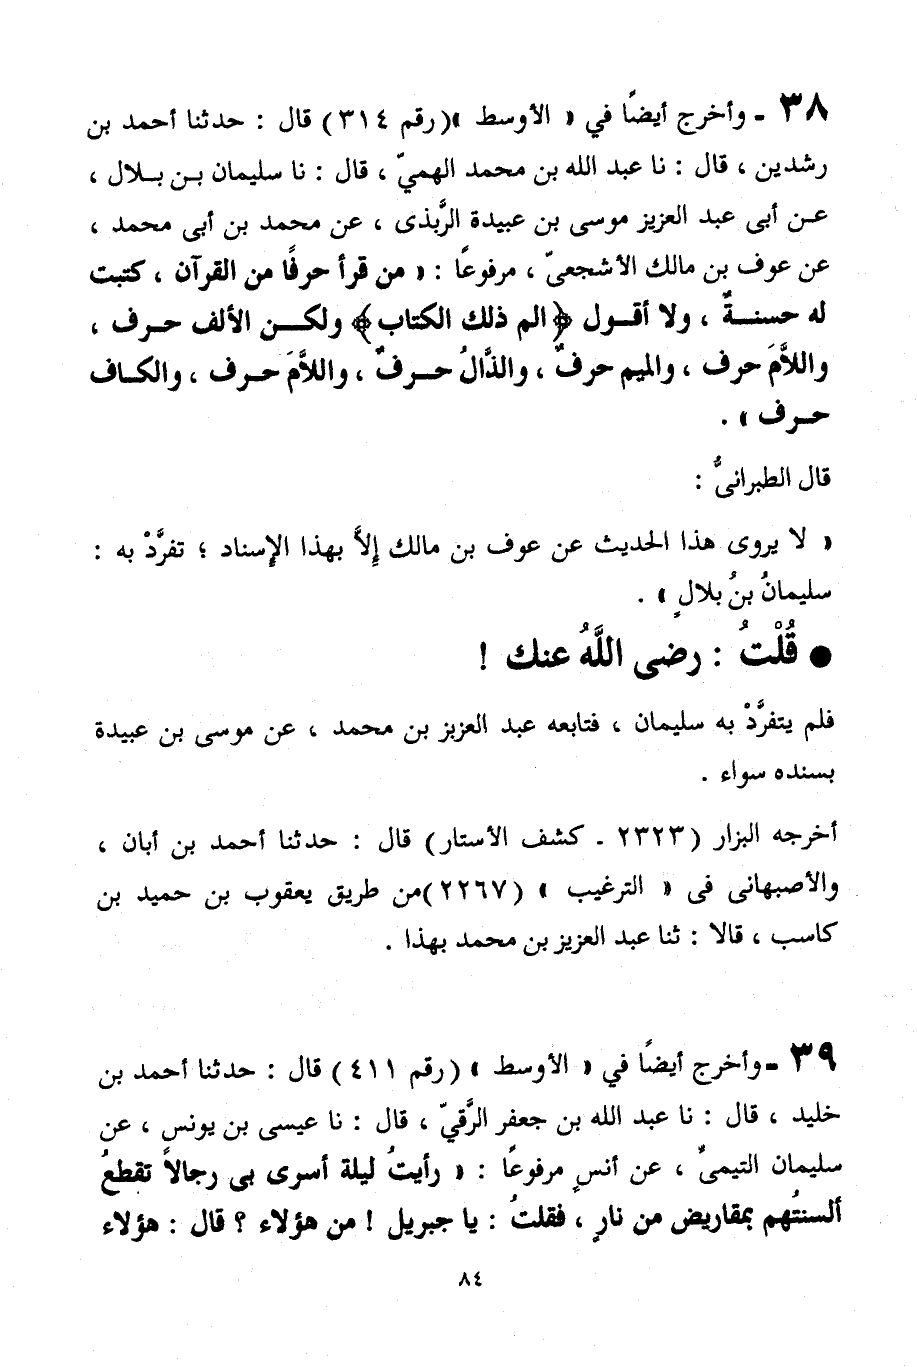 ٣٨ - وأخرج أيضًا في « الأوسط »(رقم ٣١٤) قال : حدثنا أحمد بن
رشدين ، قال : نا عبد الله بن محمد الهميّ ، قال : نا سليمان بـن بـلال ،
عـن أبى عبد العزيز موسى بن عبيدة الرَّبذى ، عن محمد بن أبى محمد ،
عن عوف بن مالك الأشجعيّ ، مرفوعًا : « من قرأ حرفًا من القرآن ، كتبت
له حسنـــةٌ ، ولا أقــول ﴿ الم ذلك الكتاب ﴾ ولكــن الألف حــرف ،
واللاَّمَ حرف ، والميم حرفٌ ، والذَّالُ حــرفٌ ، واللاَّمَ حـرف ، والكـاف
حـرف » .
قال الطبرانىُّ :
« لا يروى هذا الحديث عن عوف بن مالك إلاَّ بهذا الإسناد ؛ تفرَّدْ به :
سليمانُ بنُ بلالٍ » .
● قُلْتُ : رضى اللَّهُ عنك !
فلم يتفرَّدْ به سليمان ، فتابعه عبد العزيز بن محمد ، عن موسى بن عبيدة
بسنده سواء .
أخرجه البزار (٢٣٢٣ - كشف الأستار) قال : حدثنا أحمد بن أبان ،
والأصبهانى فى « الترغيب » (٢٢٦٧)من طريق يعقوب بن حميد بن
كاسب ، قالا : ثنا عبد العزيز بن محمد بهذا .
٣٩ -وأخرج أيضًا في « الأوسط » (رقم ٤١١) قال : حدثنا أحمد بن
خليد ، قال : نا عبد الله بن جعفر الرَّقيّ ، قال : نا عيسى بن يونس ، عن
سليمان التيمىٌ ، عن أنسٍ مرفوعًا : « رأيتُ ليلة أسرى بى رجالاً تقطعُ
ألسنتُهم بمقاريض من نارٍ ، فقلتُ : يا جبريل ! من هؤلاء ؟ قال : هؤلاء
٨٤